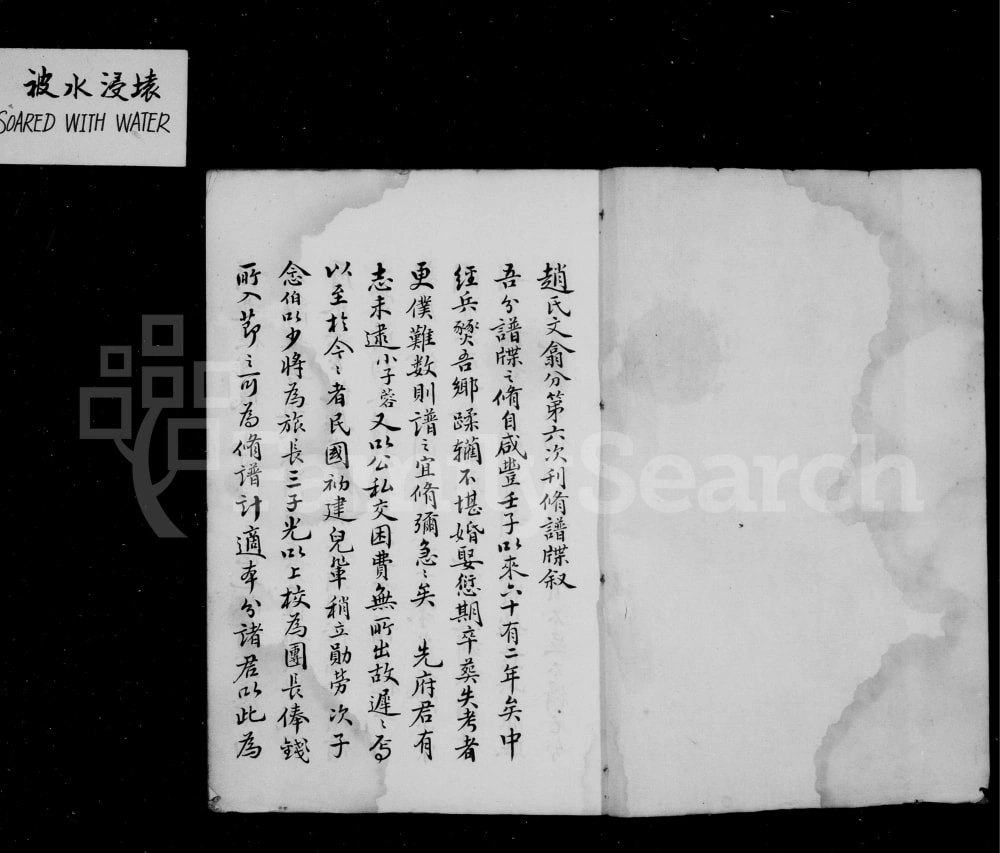 被水浸壞
SOARED WITH WATER
趙氏文翕分第六次刊脩譜牒叙
吾分譜牒之脩自咸豐壬子以來六十有二年矣中
經兵燹吾鄉蹂躪不堪婚娶愆期卒葬失考者
更僕難数則譜之宜脩彌急〻矣 先府君有
志未逮小子蓉又以公私交困費無所出故遲〻焉
以至於今〻者民國初建兒輩稍立勛勞次子
念伯以少將為旅長三子光以上校為團長俸錢
所入節之可為脩譜計適本分諸君以此為
FamilySearch